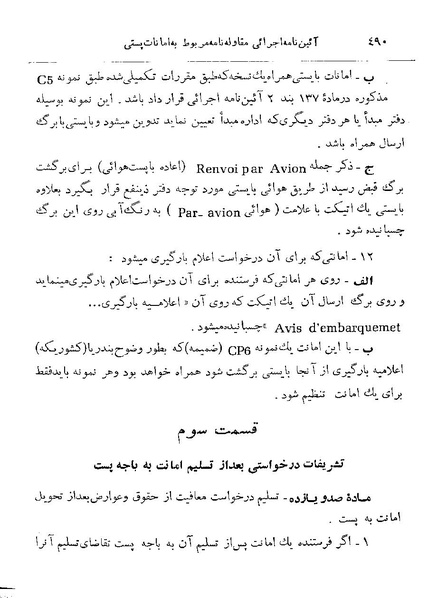 ۴۹۰ آئین‌نامه اجرائی مقاوله‌نامه مربوط به امانات پستی
ب ـ امانات بایستی همراه یك نسخه که طبق مقررات تکمیلی شده طبق نمونه C5
مذکوره در مادهٔ ۱۳۷ بند ۲ آئین‌نامه اجرائی قرار داد باشد . این نمونه بوسیله
دفتر مبدأ یا هر دفتر دیگری که اداره مبدأ تعیین نماید تدوین میشود و بایستی با برگ
ارسال همراه باشد .
ج ـ ذکر جمله Renvoi par Avion (اعاده با پست هوائی) برای برگشت
برگ قبض رسید از طریق هوائی بایستی مورد توجه دفتر ذینفع قرار بگیرد بعلاوه
بایستی یك اتیکت با علامت ( هوائی Par- avion ) به رنگ آبی روی این برگ
چسبانیده شود .
۱۲ ـ امانتی که برای آن درخواست اعلام بارگیری میشود :
الف ـ روی هر امانتی که فرستنده برای آن درخواست اعلام بارگیری مینماید
و روی برگ ارسال آن یك اتیکت که روی آن « اعلامیه بارگیری...
Avis d'embarquemet » چسبانیده میشود .
ب ـ با این امانت یك نمونه CP6 (ضمیمه) که بطور وضوح بندر یا (کشوریکه)
اعلامیه بارگیری از آنجا بایستی برگشت شود همراه خواهد بود و هر نمونه باید فقط
برای یك امانت تنظیم شود .
قسمت سوم
تشریفات درخواستی بعد از تسلیم امانت به باجه پست
مادهٔ صد و یازده ـ تسلیم درخواست معافیت از حقوق و عوارض بعد از تحویل
امانت به پست .
۱ ـ اگر فرستنده یك امانت پس از تسلیم آن به باجه پست تقاضای تسلیم آنرا